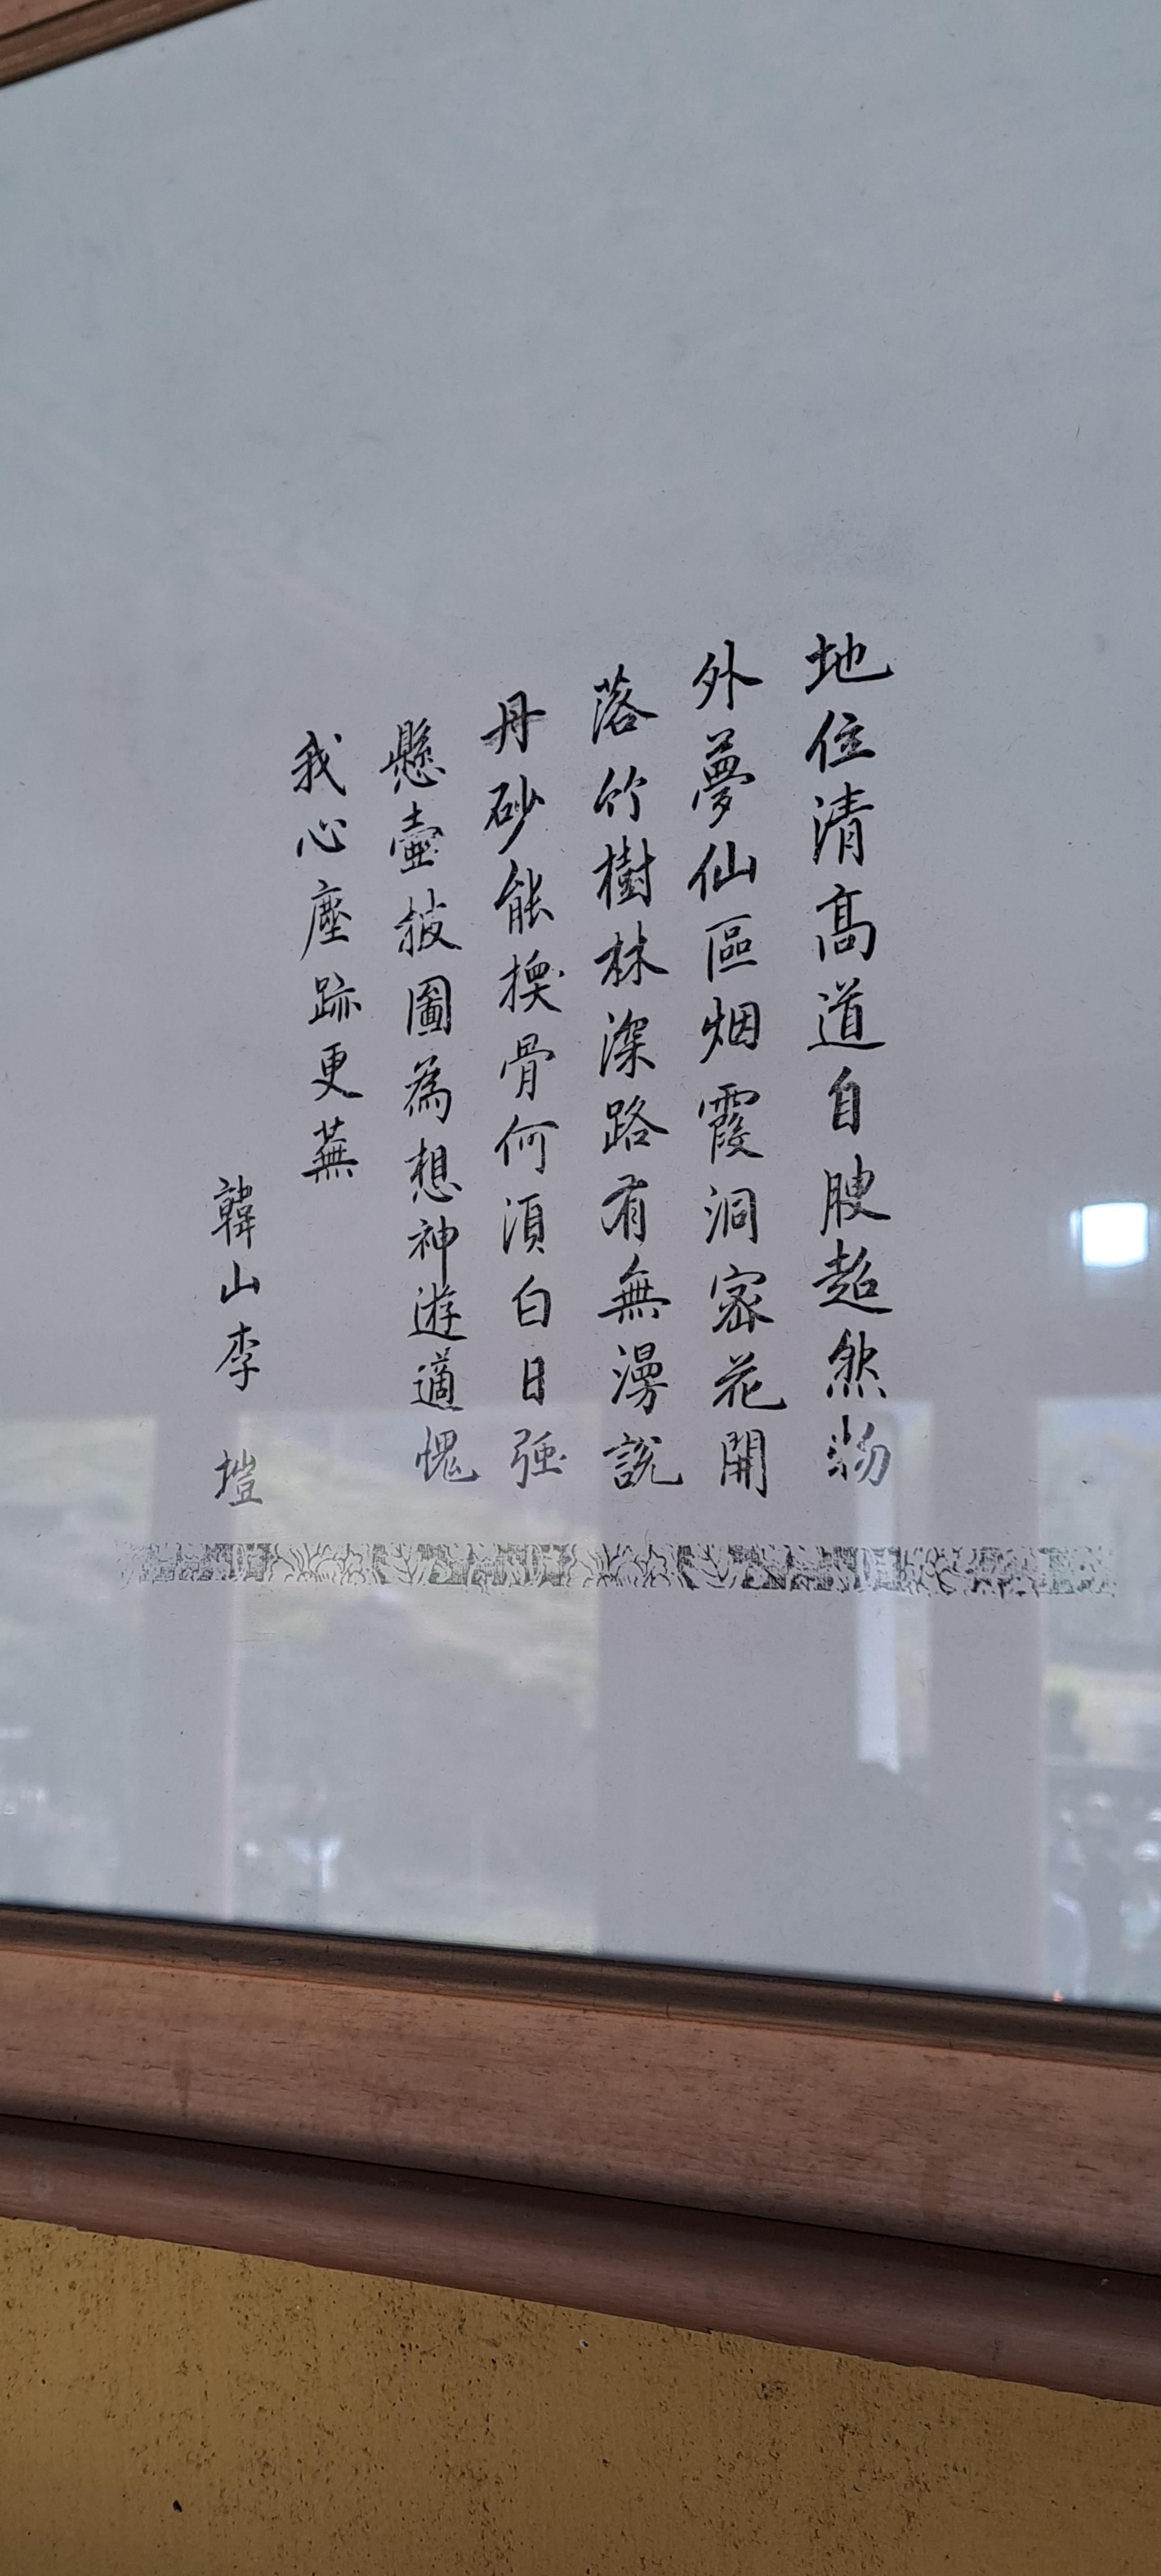 地位清高道自腴超然物
外夢仙區烟霞洞密花開
落竹樹林深路有無漫說
丹砂能換骨何須白日强
懸壺披圖為想神遊適愧
我心塵跡更蕪
韓山李 塏